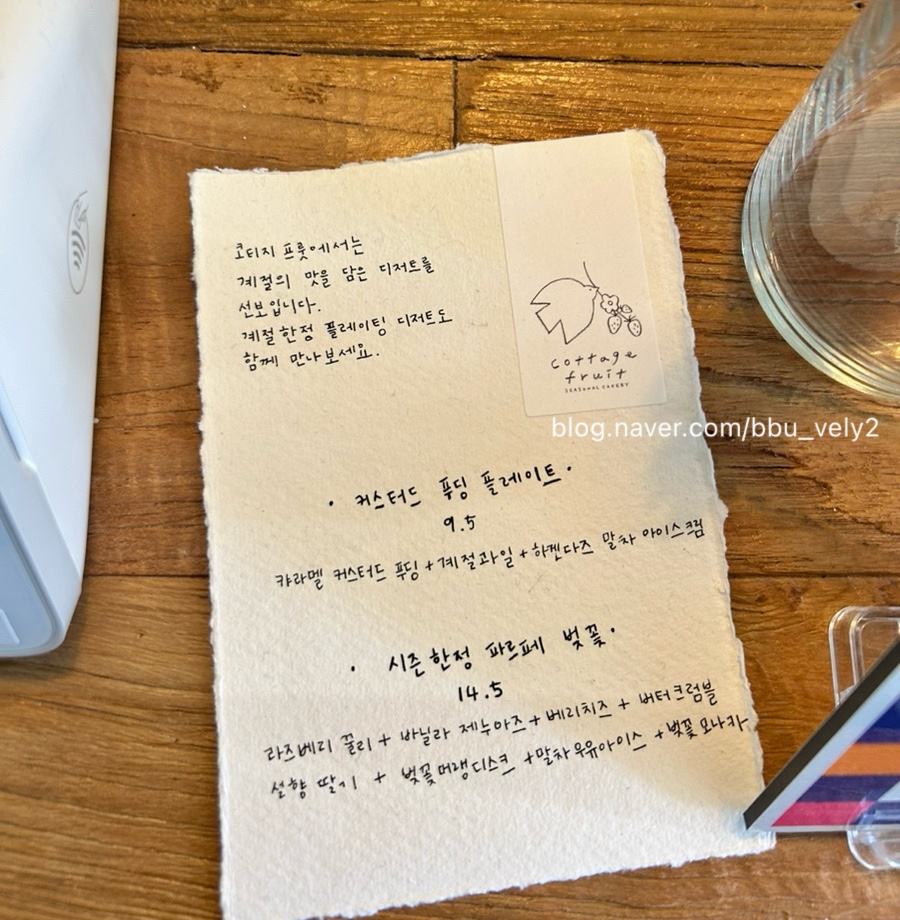 코티지 프룻에서는
계절의 맛을 담은 디저트를
선보입니다.
계절한정 플레이팅 디저트도
함께 만나보세요.
cottage
fruit
SEASONAL CAKERY
blog.naver.com/bbu_vely2
· 커스터드 푸딩 플레이트 ·
9.5
캬라멜 커스터드 푸딩 + 계절과일 + 하겐다즈 말차 아이스크림
· 시즌한정 파르페 벚꽃 ·
14.5
라즈베리 꿀리 + 바닐라 제누아즈 + 베리치즈 + 버터크럼블
설향 딸기 + 벚꽃머랭디스크 + 말차우유아이스 + 벚꽃모나카